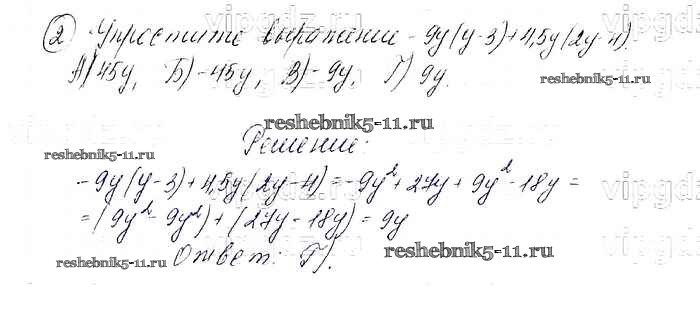 vipgdz.ru
② Упростите выражение -9y(y-3)+4,5y(2y-4).
А) 45y, Б) -45y, В) -9y, Г) 9y.
reshebnik5-11.ru
reshebnik5-11.ru
Решение:
reshebnik5-11.ru
-9y(y-3)+4,5y(2y-4)=-9y²+27y+9y²-18y=
=(9y²-9y²)+(27y-18y)=9y
reshebnik5-11.ru
Ответ: Г).
reshebnik5-11.ru